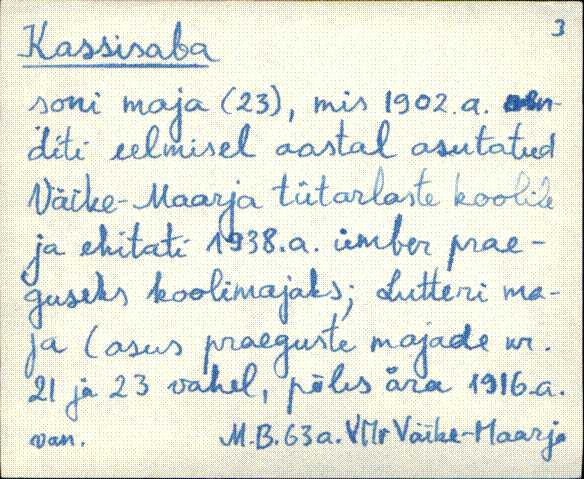 3
Kassisaba
soni maja (23), mis 1902.a. ren-
diti eelmisel aastal asutatud
Väike-Maarja tütarlaste koolile
ja ehitati 1938.a. ümber prae-
guseks koolimajaks; Lutteri ma-
ja (asus praeguste majade nr.
21 ja 23 vahel, põles ära 1916.a.
van. M.B.63a. VMr Väike-Maarja